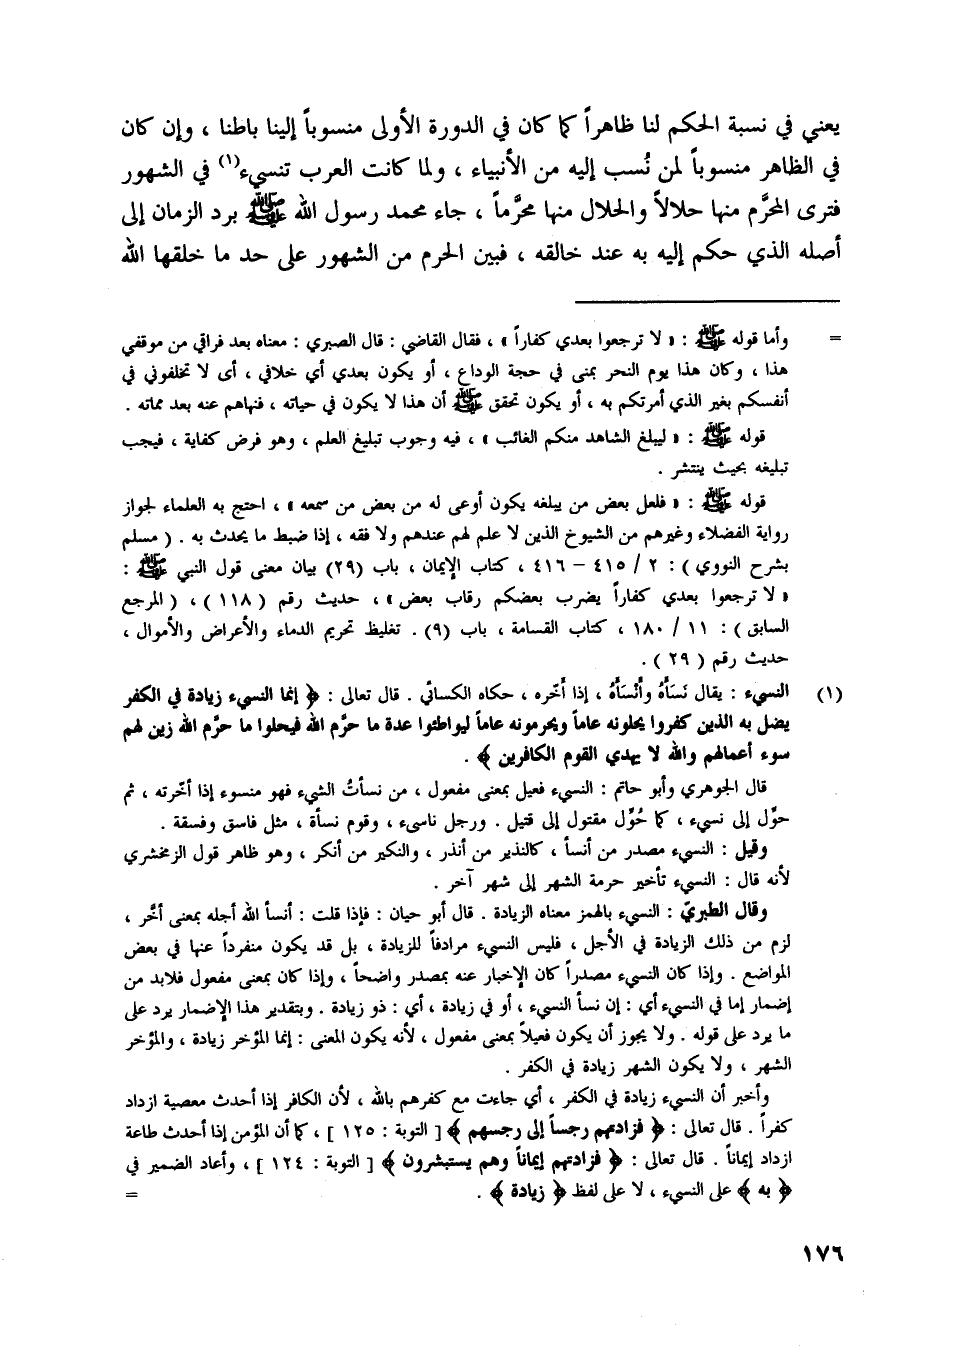 يعني في نسبة الحكم لنا ظاهراً كما كان في الدورة الأولى منسوباً إلينا باطنا ، وإن كان
في الظاهر منسوباً لمن نُسب إليه من الأنبياء ، ولما كانت العرب تنسيء(١) في الشهور
فترى المحرَّم منها حلالاً والحلال منها محرَّماً ، جاء محمد رسول الله ﷺ برد الزمان إلى
أصله الذي حكم إليه به عند خالقه ، فبين الحرم من الشهور على حد ما خلقها الله
= وأما قوله ﷺ : « لا ترجعوا بعدي كفاراً » ، فقال القاضي : قال الصبري : معناه بعد فراقي من موقفي
هذا ، وكان هذا يوم النحر بمنى في حجة الوداع ، أو يكون بعدي أي خلافي ، أى لا تخلفوني في
أنفسكم بغير الذي أمرتكم به ، أو يكون تحقق ﷺ أن هذا لا يكون في حياته ، فنهاهم عنه بعد مماته .
قوله ﷺ : « ليبلغ الشاهد منكم الغائب » ، فيه وجوب تبليغ العلم ، وهو فرض كفاية ، فيجب
تبليغه بحيث ينتشر .
قوله ﷺ : « فلعل بعض من يبلغه يكون أوعى له من بعض من سمعه » ، احتج به العلماء لجواز
رواية الفضلاء وغيرهم من الشيوخ الذين لا علم لهم عندهم ولا فقه ، إذا ضبط ما يحدث به . ( مسلم
بشرح النووي ) : ٢ / ٤١٥ – ٤١٦ ، كتاب الإيمان ، باب (٢٩) بيان معنى قول النبي ﷺ :
« لا ترجعوا بعدي كفاراً يضرب بعضكم رقاب بعض » ، حديث رقم ( ١١٨ ) ، ( المرجع
السابق ) : ١١ / ١٨٠ ، كتاب القسامة ، باب (٩) . تغليظ تحريم الدماء والأعراض والأموال ،
حديث رقم ( ٢٩ ) .
(١) النسيء : يقال نَسَأَهُ وأَنْسَأَهُ ، إذا أَخّره ، حكاه الكسائي . قال تعالى : ﴿ إنما النسيء زيادة في الكفر
يضل به الذين كفروا يحلونه عاماً ويحرمونه عاماً ليواطئوا عدة ما حرَّم الله فيحلوا ما حرَّم الله زين لهم
سوء أعمالهم والله لا يهدي القوم الكافرين ﴾ .
قال الجوهري وأبو حاتم : النسيء فعيل بمعنى مفعول ، من نسأتُ الشيء فهو منسوء إذا أخّرته ، ثم
حوِّل إلى نسيء ، كما حُوِّل مقتول إلى قتيل . ورجل ناسىء ، وقوم نسأة ، مثل فاسق وفسقة .
وقيل : النسيء مصدر من أنسأ ، كالنذير من أنذر ، والنكير من أنكر ، وهو ظاهر قول الزمخشري
لأنه قال : النسيء تأخير حرمة الشهر إلى شهر آخر .
وقال الطبريّ : النسيء بالهمز معناه الزيادة . قال أبو حيان : فإذا قلت : أنسأ الله أجله بمعنى أخَّر ،
لزم من ذلك الزيادة في الأجل ، فليس النسيء مرادفاً للزيادة ، بل قد يكون منفرداً عنها في بعض
المواضع . وإذا كان النسيء مصدراً كان الإخبار عنه بمصدر واضحاً ، وإذا كان بمعنى مفعول فلابد من
إضمار إما في النسيء أي : إن نسأ النسيء ، أو في زيادة ، أي : ذو زيادة . وبتقدير هذا الإضمار يرد على
ما يرد على قوله . ولا يجوز أن يكون فعيلاً بمعنى مفعول ، لأنه يكون المعنى : إنما المؤخر زيادة ، والمؤخر
الشهر ، ولا يكون الشهر زيادة في الكفر .
وأخبر أن النسيء زيادة في الكفر ، أي جاءت مع كفرهم بالله ، لأن الكافر إذا أحدث معصية ازداد
كفراً . قال تعالى : ﴿ فزادتهم رجساً إلى رجسهم ﴾ [ التوبة : ١٢٥ ] ، كما أن المؤمن إذا أحدث طاعة
ازداد إيماناً . قال تعالى : ﴿ فزادتهم إيماناً وهم يستبشرون ﴾ [ التوبة : ١٢٤ ] ، وأعاد الضمير في
﴿ به ﴾ على النسيء ، لا على لفظ ﴿ زيادة ﴾ . =
١٧٦